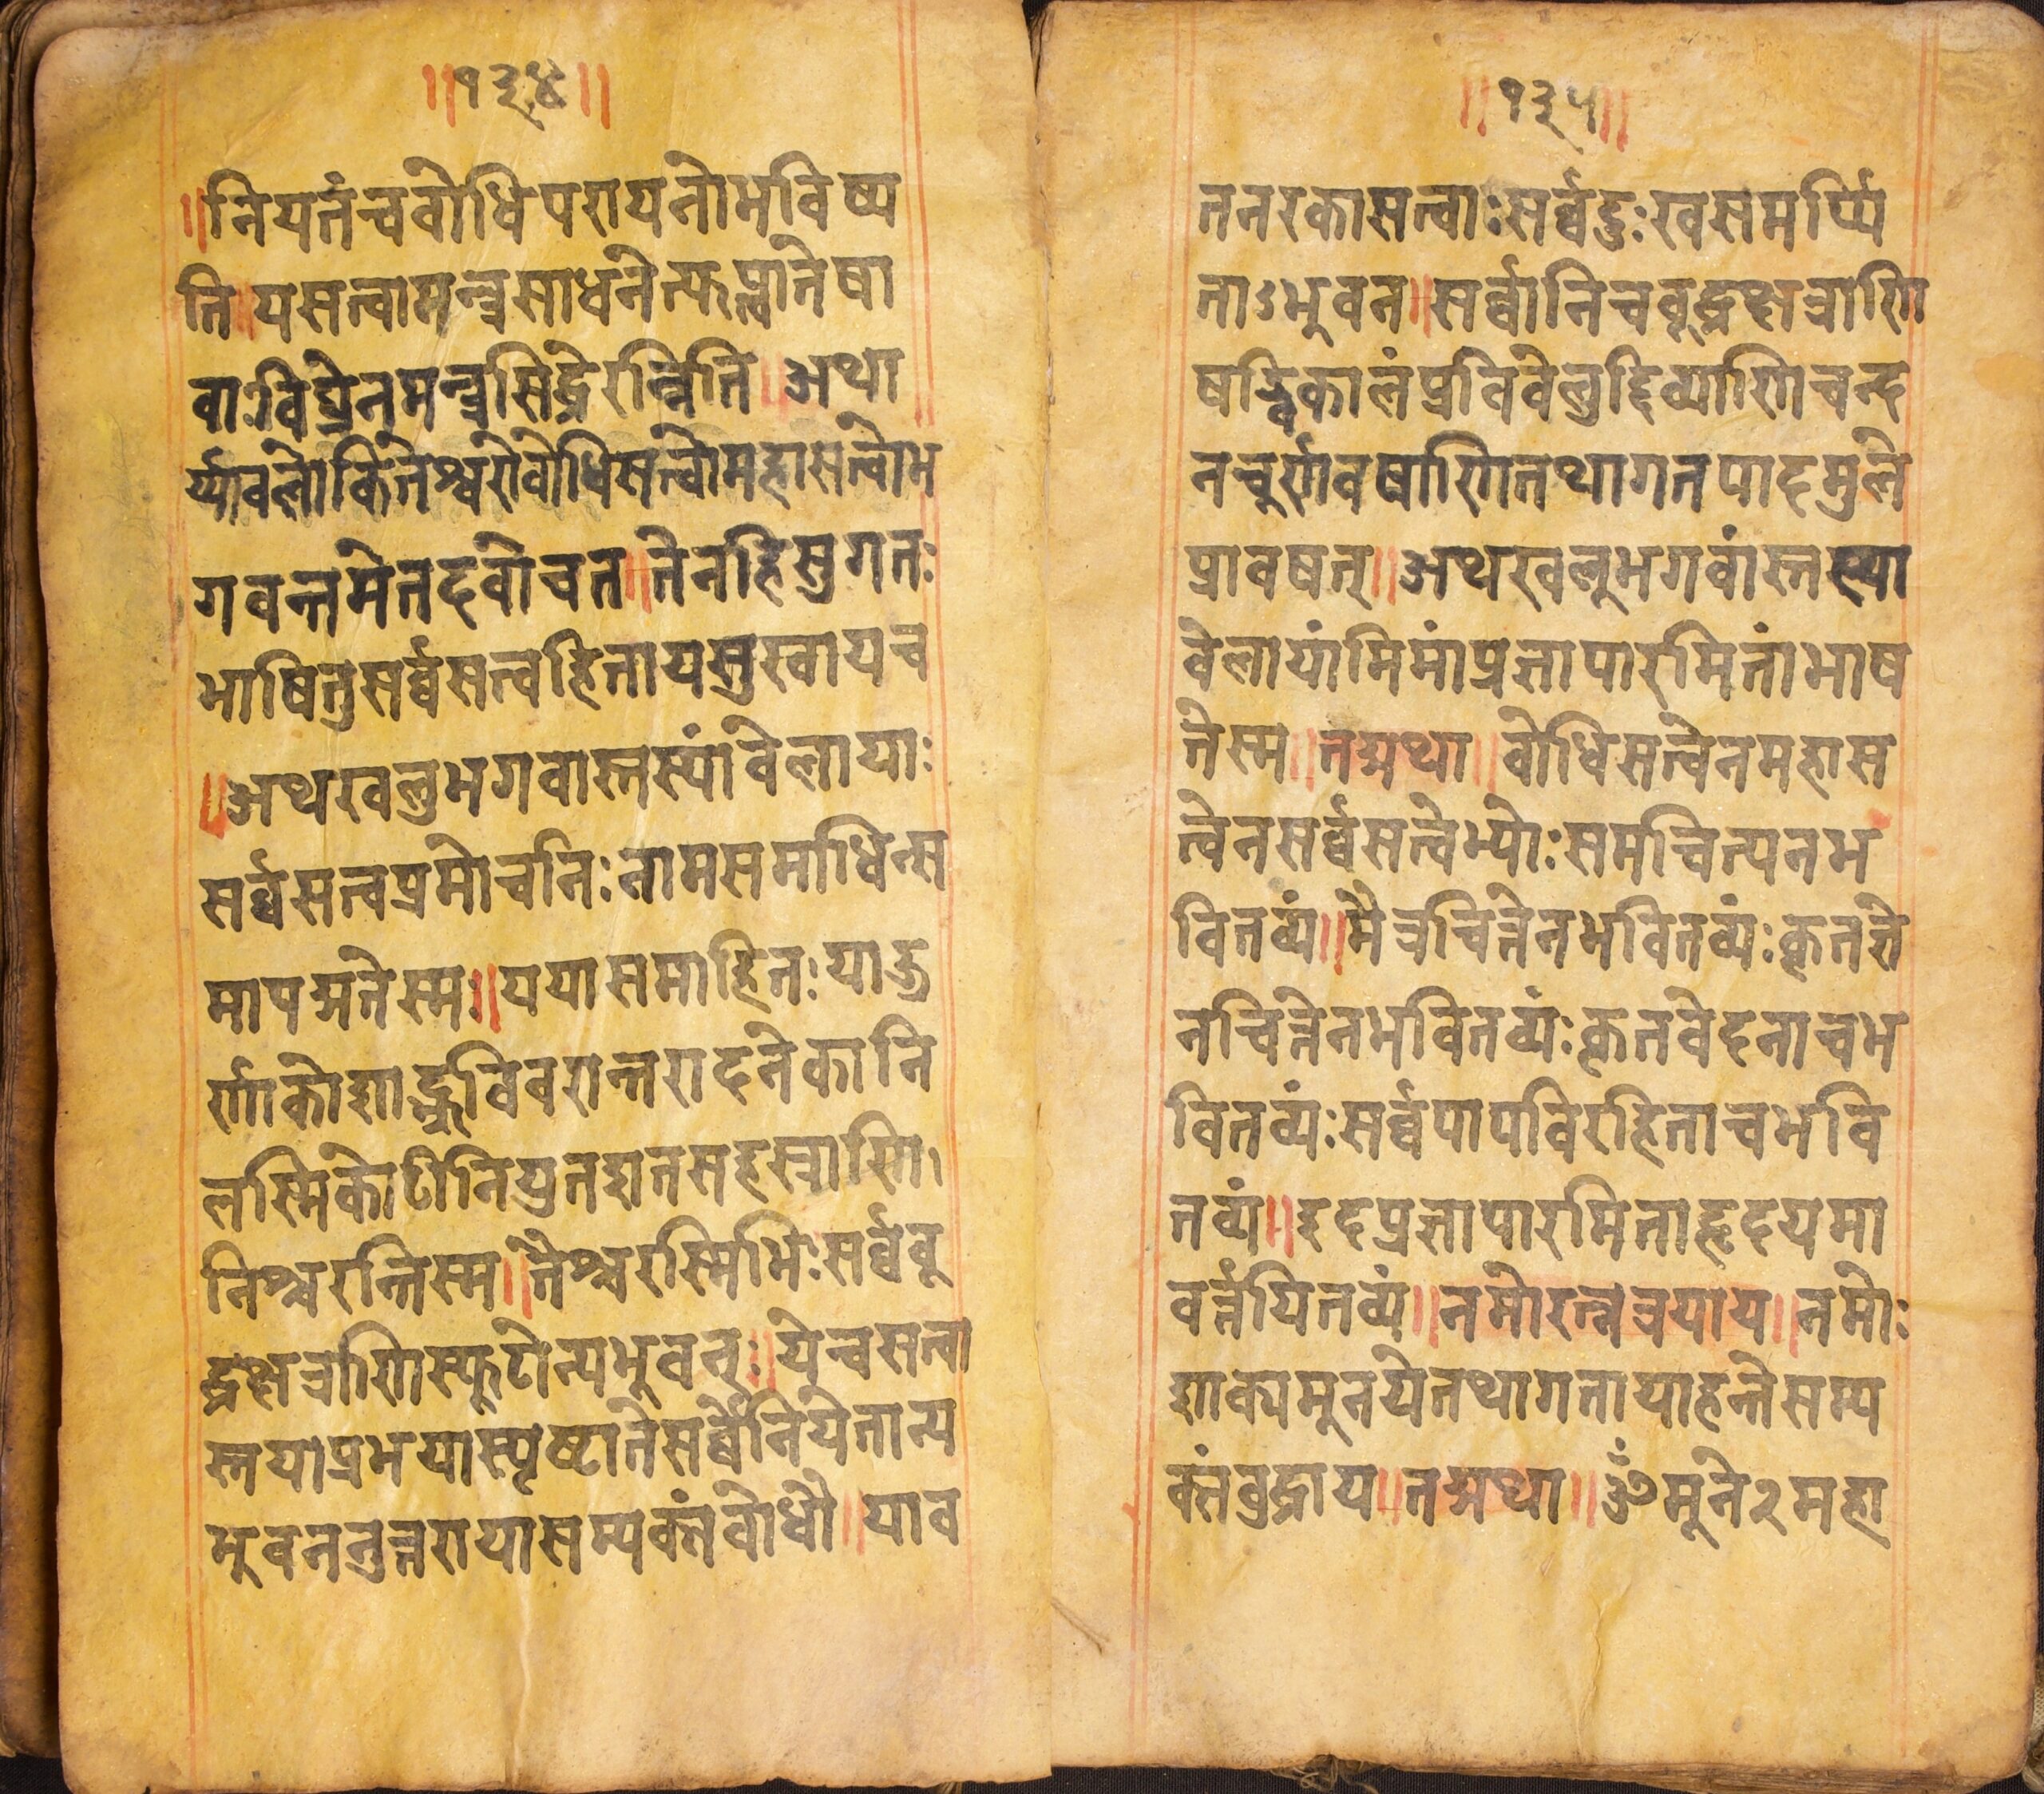 ॥१३४॥
॥नियतंचवोधिपरायनोभविष्य
ति॥यसत्वामन्त्रसाधनेत्फप्तातेषा
वाःविघ्नेनमन्त्रसिद्धेरत्निति॥अथा
र्य्यावलोकितेश्वरोवोधिसत्वोमहासत्वोभ
गवन्तमेतदवोचत॥तेनहिसुगतः
भाषितुसर्व्वसत्वहितायसुखायच
॥अथखलुभगवास्तस्यांवेलायाः
सर्व्वसत्वप्रमोचनिःनामसमाधिन्स
मापद्यतेस्मः॥ययासमाहितःयाड
र्णाकोशाद्भ्रूविवरान्तरादनेकानि
लस्मिकोटीनियुतशतसहस्राणि।
निश्चरन्तिस्म॥तैश्चरस्मिभिःसर्व्ववु
द्धक्षत्राणिस्फूटोन्यभूवन्ः॥येचसत्वा
स्तयाप्रभयास्पृष्टातेसर्व्वेनियेतान्य
भूवननुत्तरायासम्यक्तंवोधौ॥याव
॥१३५॥
तनरकासत्वाःसर्व्वदुःखसमर्प्पि
ताऽभुवन॥सर्व्वानिचवूद्धक्षत्राणि
षड्विकालंप्रविवेलुद्दिव्याणिचन्द
नचूर्णवषाणितथागतपादमुले
प्रावषत्॥अथखलूभगवांस्तस्या
वेलायांमिमांप्रज्ञापारमितांभाष
तेस्म॥तद्यथा॥वोधिसत्वेनमहास
त्वेनसर्व्वसत्वेभ्योःसमचित्यनभ
वितव्यं॥मैत्रचित्तेनभवितव्यंःकृतज्ञे
नचित्तेनभवितव्यंःकृतवेदनाचभ
वितव्यंःसर्व्वपापविरहिताचभवि
तव्यं॥इदप्रज्ञापारमिताहृदयमा
वर्त्तयितव्यं॥नमोरत्नत्रयाय॥नमोः
शाक्यमूनयेतथागतायाहन्तेसम्य
क्तंवुद्धाय॥तद्यथा॥ॐमूने२महा